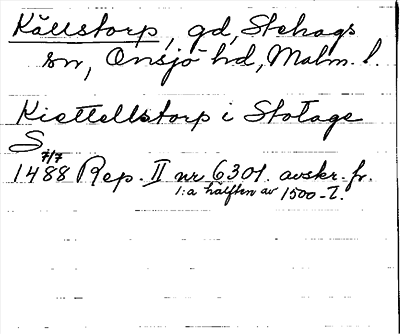 Källstorp, gd, Stehags
sn, Onsjö hd, Malm. l.
Kiettellstorp i Stotage
S
7/7
1488 Rep. II nr 6301. avskr. fr.
1:a hälften av 1500-t.